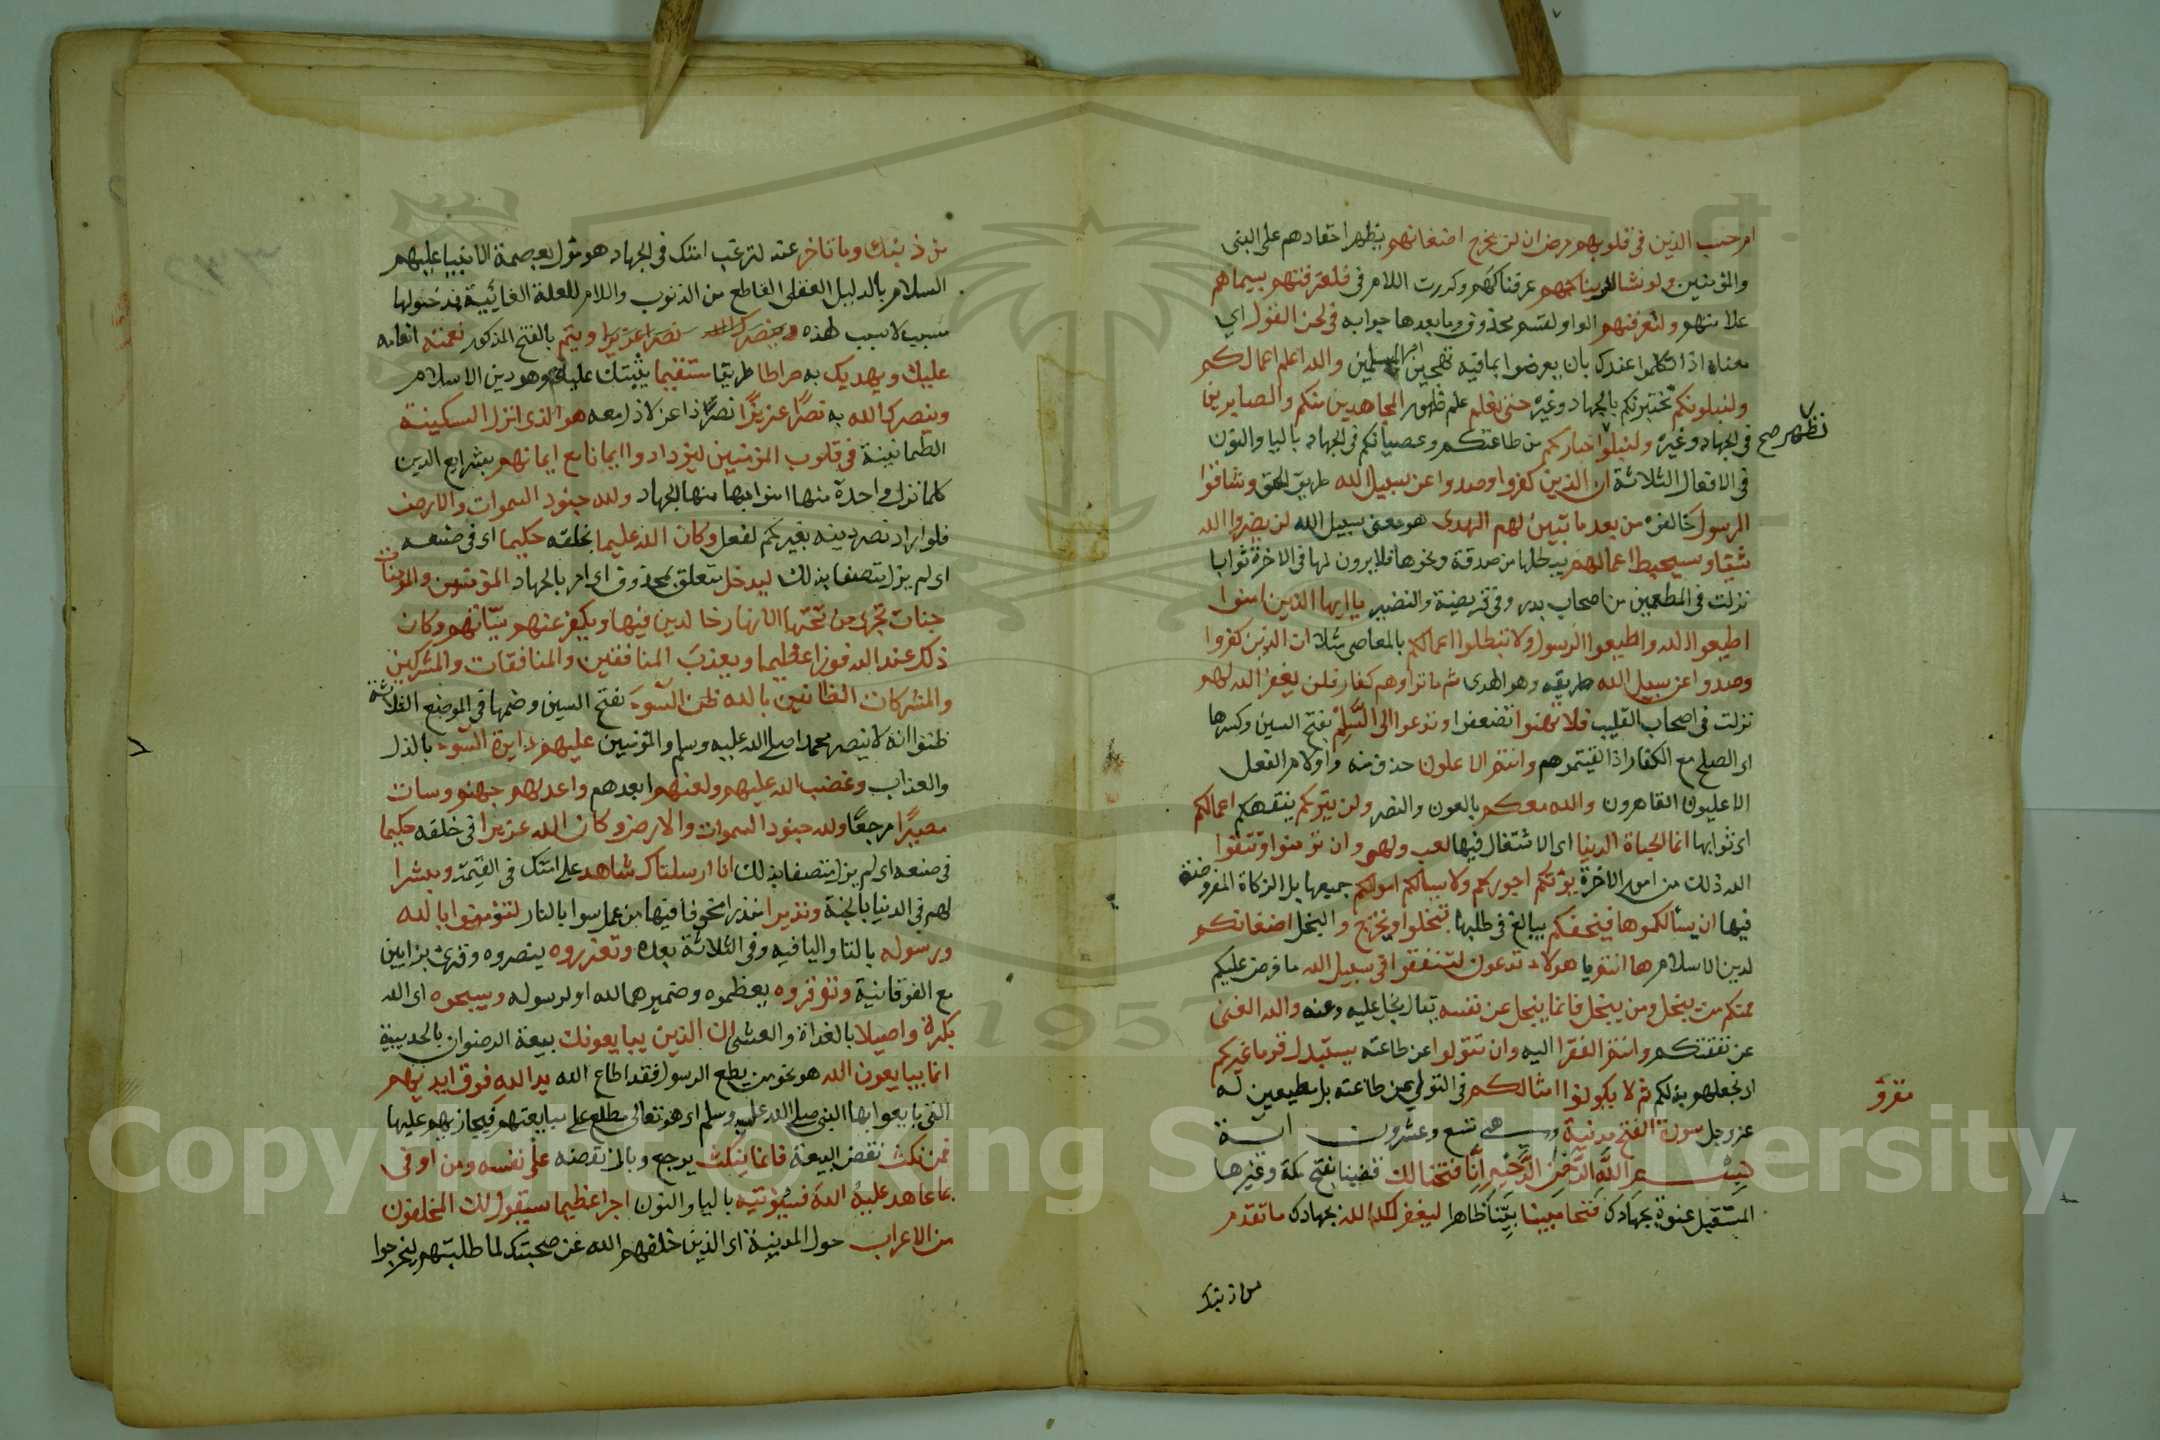 ام حسب الذين في قلوبهم مرض ان لن يخرج اضغانهم يظهر احقادهم على النبي
والمؤمنين ولو نشا لاريناكهم عرفناكهم وكررت اللام في فلعرفتهم بسيماهم
علامتهم ولتعرفنهم الواو لقسم محذوف وما بعدها جوابه في لحن القول اي
معناه اذا تكلموا عندك بان يعرضوا بما فيه تهجين امر المسلمين والله اعلم اعمالكم
ولنبلونكم نختبرنكم بالجهاد وغيره حتى نعلم علم ظهور المجاهدين منكم والصابرين
في الجهاد وغيره ولنبلوا اخباركم من طاعتكم وعصيانكم في الجهاد باليا والنون
نظهر صح
في الافعال الثلاثة ان الذين كفروا وصدوا عن سبيل الله طريق الحق وشاقوا
الرسول خالفوه من بعد ما تبين لهم الهدى هو معنى سبيل الله لن يضروا الله
شيئا وسيحبط اعمالهم يبطلها من صدقة ونحوها فلا يرون لها في الاخرة ثوابا
نزلت في المطعمين من اصحاب بدر وفي قريضة والنضير يا ايها الذين امنوا
اطيعوا الله واطيعوا الرسول ولا تبطلوا اعمالكم بالمعاصي مثلا ان الذين كفروا
وصدوا عن سبيل الله طريقه وهو الهدى ثم ماتوا وهم كفار فلن يغفر الله لهم
نزلت في اصحاب القليب فلا تهنوا تضعفوا وتدعوا الى السلم بفتح السين وكسرها
اي الصلح مع الكفار اذا لقيتموهم وانتم الاعلون حذف منه واو لام الفعل
الاغلبون القاهرون والله معكم بالعون والنصر ولن يتركم ينقصكم اعمالكم
اي ثوابها انما الحياة الدنيا اي الاشتغال فيها لعب ولهو وان تؤمنوا وتتقوا
الله ذلك من امور الاخرة يؤتكم اجوركم ولا يسالكم اموالكم جميعها بل الزكاة المفروضة
فيها ان يسالكموها فيحفكم يبالغ في طلبها تبخلوا ويخرج والبخل اضغانكم
لدين الاسلام ها انتم يا هولاء تدعون لتنفقوا في سبيل الله ما فرض عليكم
فمنكم من يبخل ومن يبخل فانما يبخل عن نفسه يقال بخل عليه وعنه والله الغني
عن نفقتكم وانتم الفقرا اليه وان تتولوا عن طاعته يستبدل قوما غيركم
اي يجعلهم بدلكم ثم لا يكونوا امثالكم في التولي عن طاعته بل مطيعين له
عز وجل سورة الفتح مدنية وهي تسع وعشرون اية
بسم الله الرحمن الرحيم انا فتحنا لك قضينا بفتح مكة وغيرها
المستقبل عنوة بجهادك فتحا مبينا بينا ظاهرا ليغفر لك الله بجهادك ما تقدم
من ذنبك
من ذنبك وما تاخر عنه لترغب امتك في الجهاد هو مؤول بعصمة الانبيا عليهم
السلام بالدليل العقلي القاطع من الذنوب واللام للعلة الغائية فمدخولها
مسبب لا سبب لهذه وينصرك الله نصرا عزيزا ويتم بالفتح المذكور نعمته انعامه
عليك ويهديك به صراطا طريقا مستقيما يثبتك عليه وهو دين الاسلام
وينصرك الله به نصرا عزيزا نصرا ذا عز لا ذل معه هو الذي انزل السكينة
الطمانينة في قلوب المؤمنين ليزدادوا ايمانا مع ايمانهم بشرايع الدين
كلما نزل واحدة منها امنوا بها منها الجهاد ولله جنود السموات والارض
فلو اراد نصر دينه بغيركم لفعل وكان الله عليما بخلقه حكيما اي في صنعه
اي لم يزل متصفا بذلك ليدخل متعلق بمحذوف اي امر بالجهاد المؤمنين والمؤمنات
جنات تجري من تحتها الانهار خالدين فيها ويكفر عنهم سيئاتهم وكان
ذلك عند الله فوزا عظيما ويعذب المنافقين والمنافقات والمشركين
والمشركات الظانين بالله ظن السوء بفتح السين وضمها في المواضع الثلاثة
ظنوا انه لا ينصر محمدا صلى الله عليه وسلم والمؤمنين عليهم دايرة السوء بالذل
والعذاب وغضب الله عليهم ولعنهم ابعدهم واعد لهم جهنم وسات
مصيرا مرجعا ولله جنود السموات والارض وكان الله عزيزا في خلقه حكيما
في صنعه اي لم يزل متصفا بذلك انا ارسلناك شاهدا على امتك في القيمة ومبشرا
لهم في الدنيا بالجنة ونذيرا منذرا مخوفا فيها من عمل سوا بالنار لتؤمنوا بالله
ورسوله بالتا واليا فيه وفي الثلاثة بعده وتعزروه ينصروه وقرئ بزايين
مع الفوقانية وتوقروه يعظموه وضميرهما لله او لرسوله ويسبحوه اي الله
بكرة واصيلا بالغداة والعشي ان الذين يبايعونك بيعة الرضوان بالحديبية
انما يبايعون الله هو نحو من يطع الرسول فقد اطاع الله يد الله فوق ايديهم
التي بايعوا بها النبي صلى الله عليه وسلم اي هو تعالى مطلع على مبايعتهم فيجازيهم عليها
فمن نكث نقض البيعة فانما ينكث يرجع وبال نقضه على نفسه ومن اوفى
بما عاهد عليه الله فسيؤتيه باليا والنون اجرا عظيما سيقول لك المخلفون
من الاعراب حول المدينة اي الذين خلفهم الله عن صحبتك لما طلبتهم ليخرجوا
1957
Copyright © King Saud University